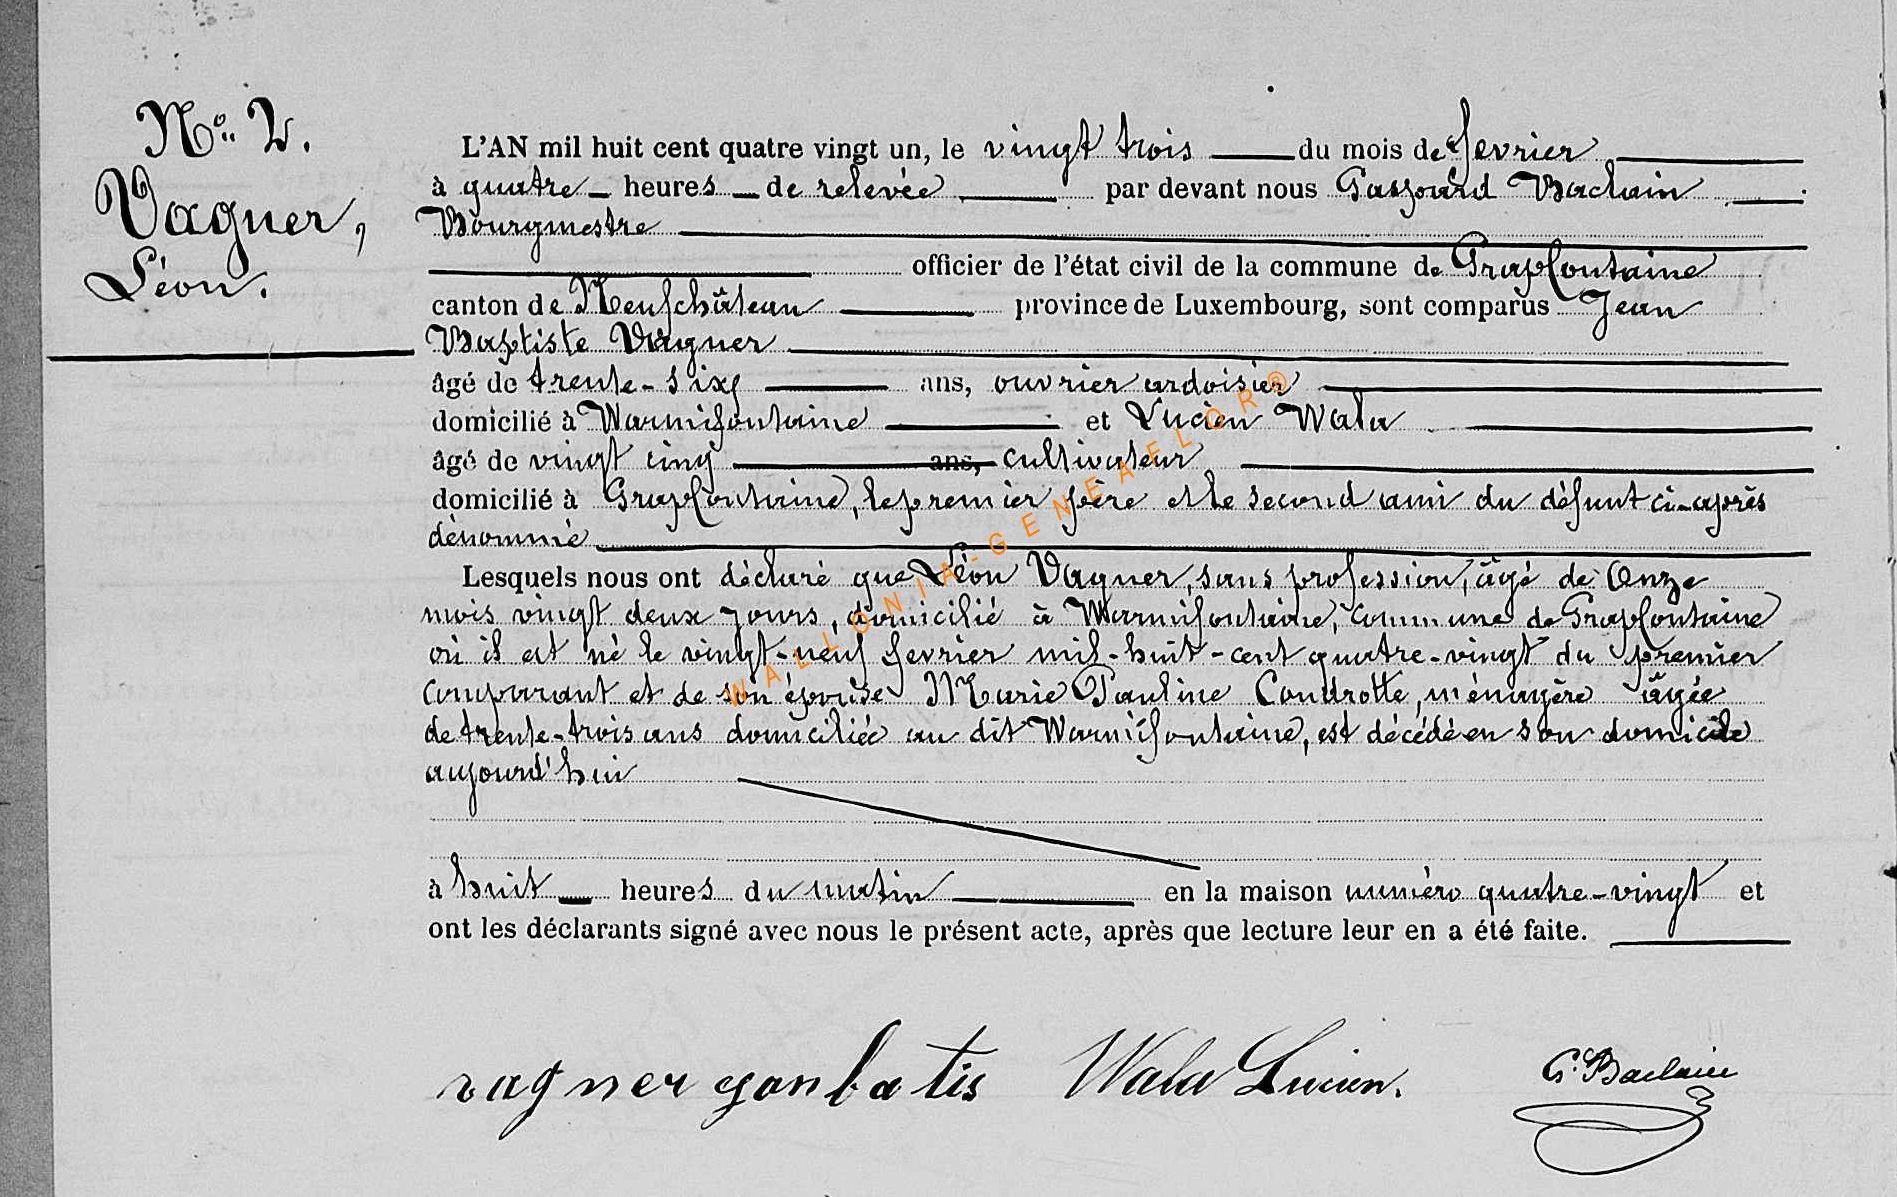 No. 2.
Vagner,
Léon.
L'AN mil huit cent quatre vingt un, le vingt trois du mois de fevrier
à quatre heures de relevée par devant nous Gaspard Baclain
Bourgmestre
officier de l'état civil de la commune de Grapfontaine
canton de Neufchâteau province de Luxembourg, sont comparus Jean
Baptiste Vagner
âgé de trente-six ans, ouvrier ardoisier
domicilié à Warmifontaine et Lucien Wala
âgé de vingt cinq ans, cultivateur
domicilié à Grapfontaine, le premier père et le second ami du défunt ci-après
dénommé
Lesquels nous ont déclaré que Léon Vagner, sans profession, âgé de Onze
mois vingt deux jours, domicilié à Warmifontaine, commune de Grapfontaine
où il est né le vingt-neuf fevrier mil-huit-cent quatre-vingt du premier
comparant et de son épouse Marie Pauline Condrotte, ménagère âgée
de trente-trois ans domiciliée au dit Warmifontaine, est décédé en son domicile
aujourd'hui
à huit heures du matin en la maison numéro quatre-vingt et
ont les déclarants signé avec nous le présent acte, après que lecture leur en a été faite.
vagner gonbatis Wala Lucien. G. Baclain
WALLONIA-GENEAELOR®